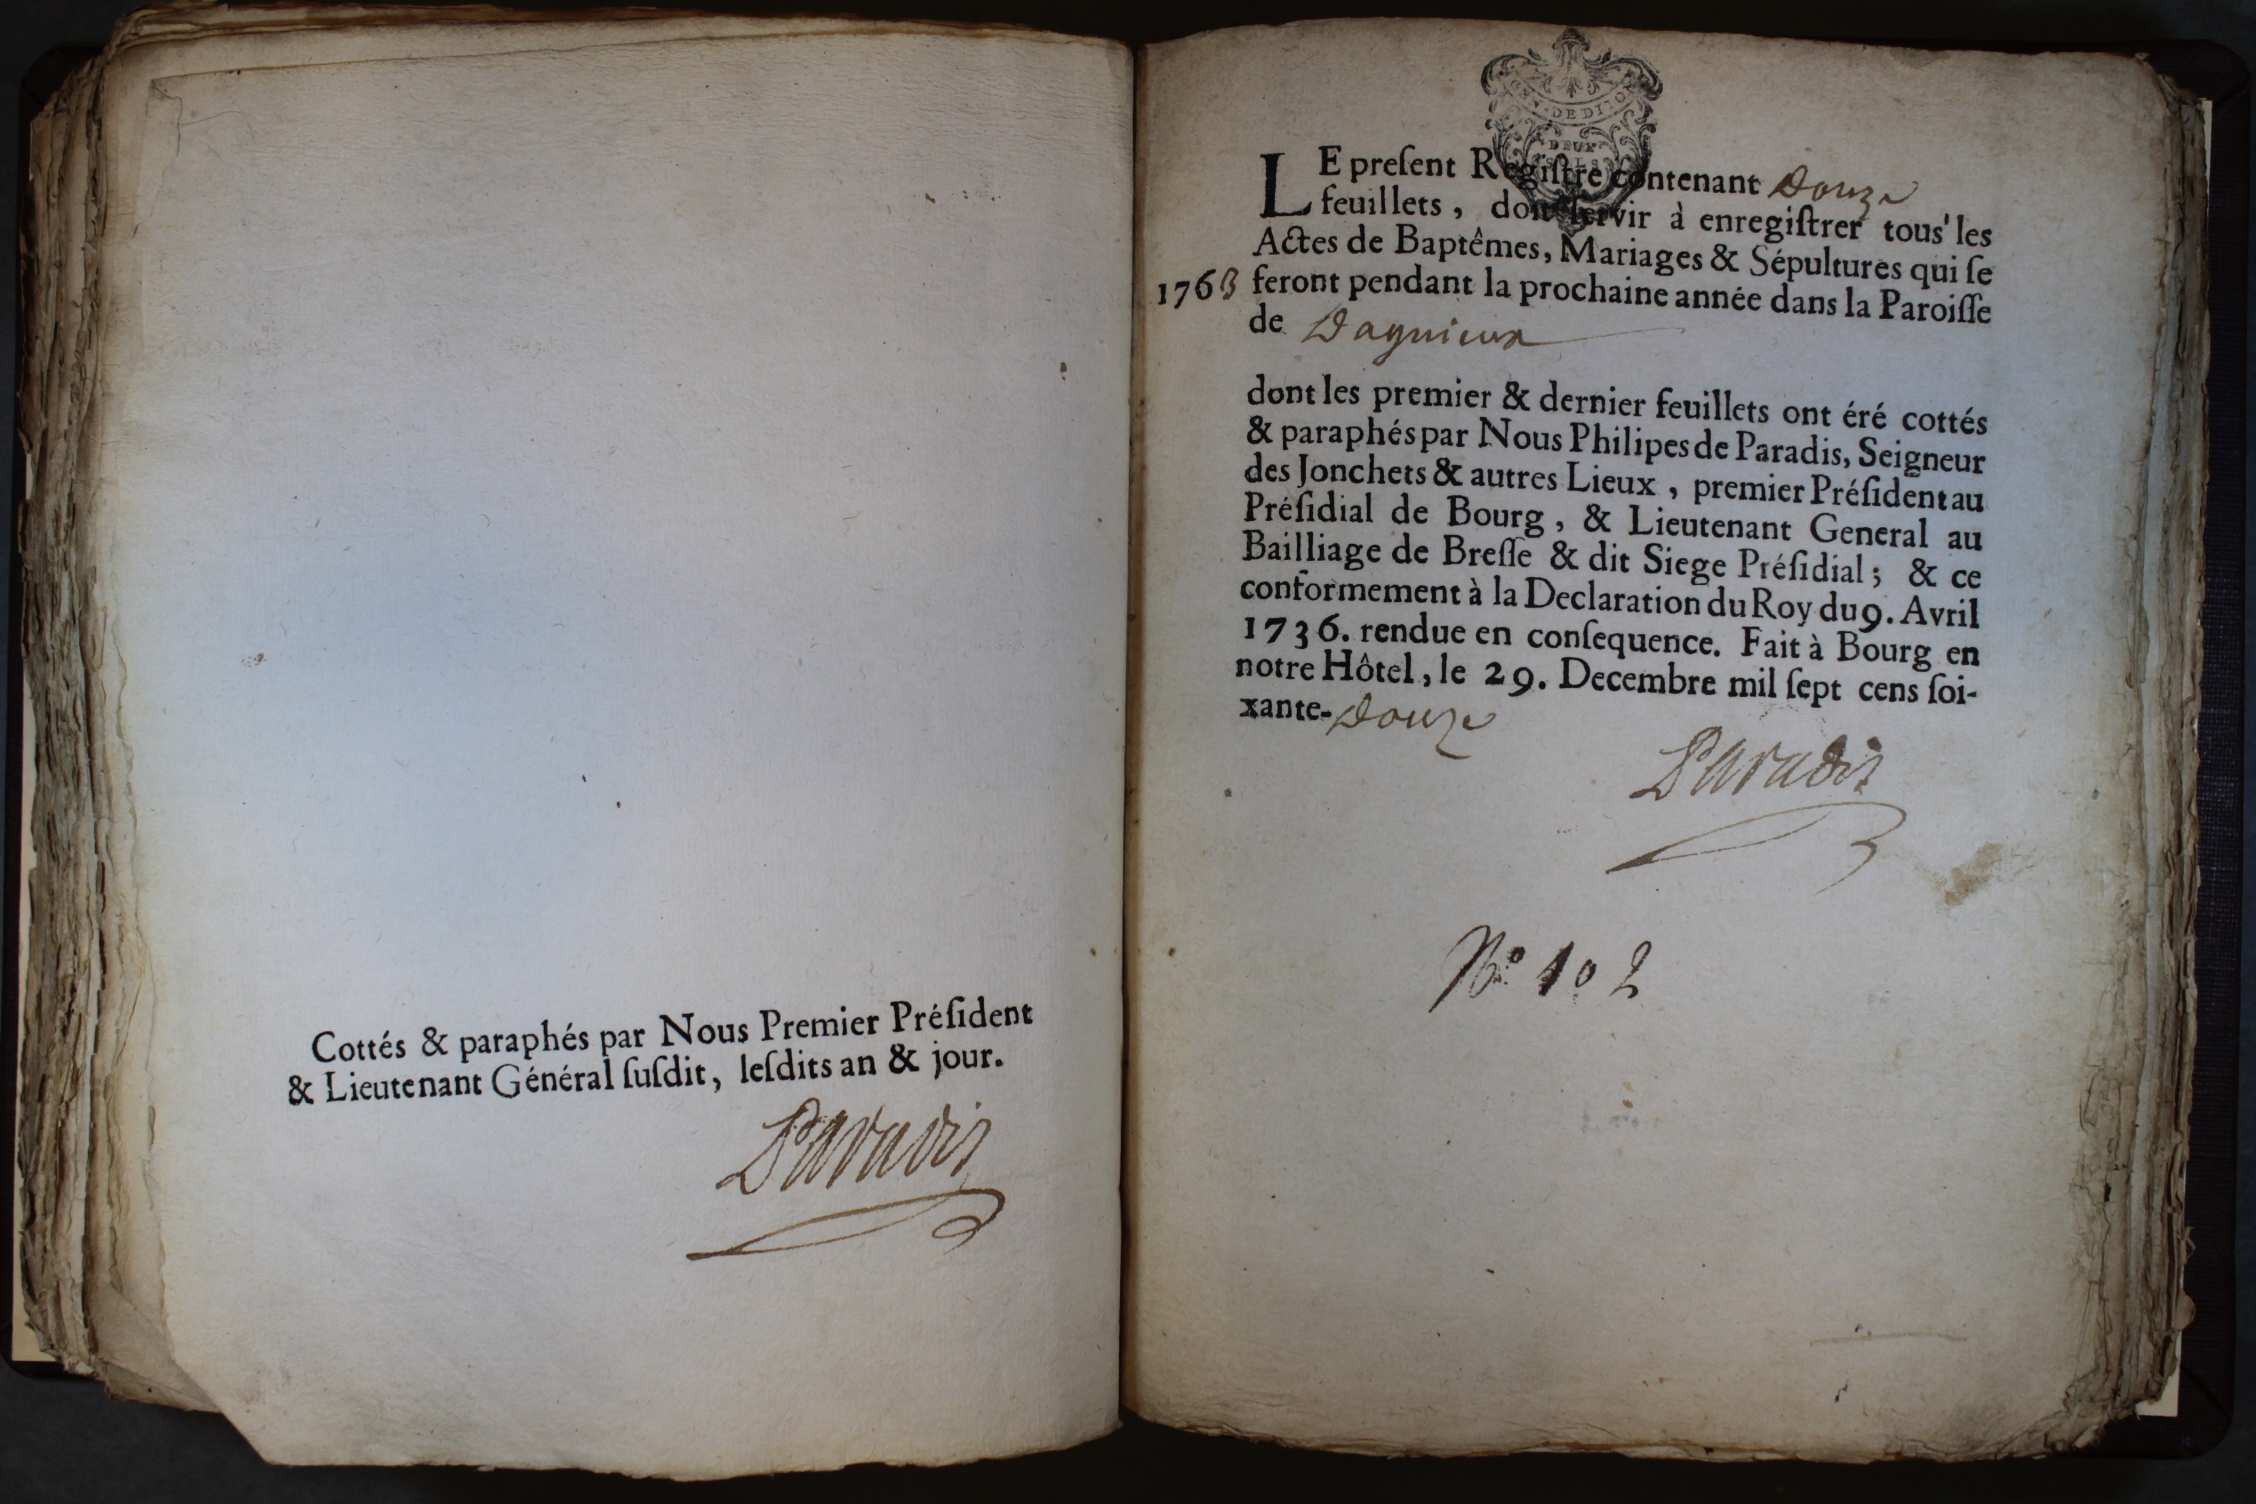 Cottés & paraphés par Nous Premier Préſident
& Lieutenant Général ſuſdit, leſdits an & jour.
Paradis
GEN. DE DIJON
DEUX
SOLS
LE preſent Regiſtre contenant Douze
feuillets, doit ſervir à enregiſtrer tous les
Actes de Baptêmes, Mariages & Sépultures qui ſe
1763 feront pendant la prochaine année dans la Paroiſſe
de Dagnieux
dont les premier & dernier feuillets ont éré cottés
& paraphés par Nous Philipes de Paradis, Seigneur
des Jonchets & autres Lieux, premier Préſident au
Préſidial de Bourg, & Lieutenant General au
Bailliage de Breſſe & dit Siege Préſidial; & ce
conformement à la Declaration du Roy du 9. Avril
1736. rendue en conſequence. Fait à Bourg en
notre Hôtel, le 29. Decembre mil ſept cens ſoi-
xante-Douze
Paradis
N.º 102